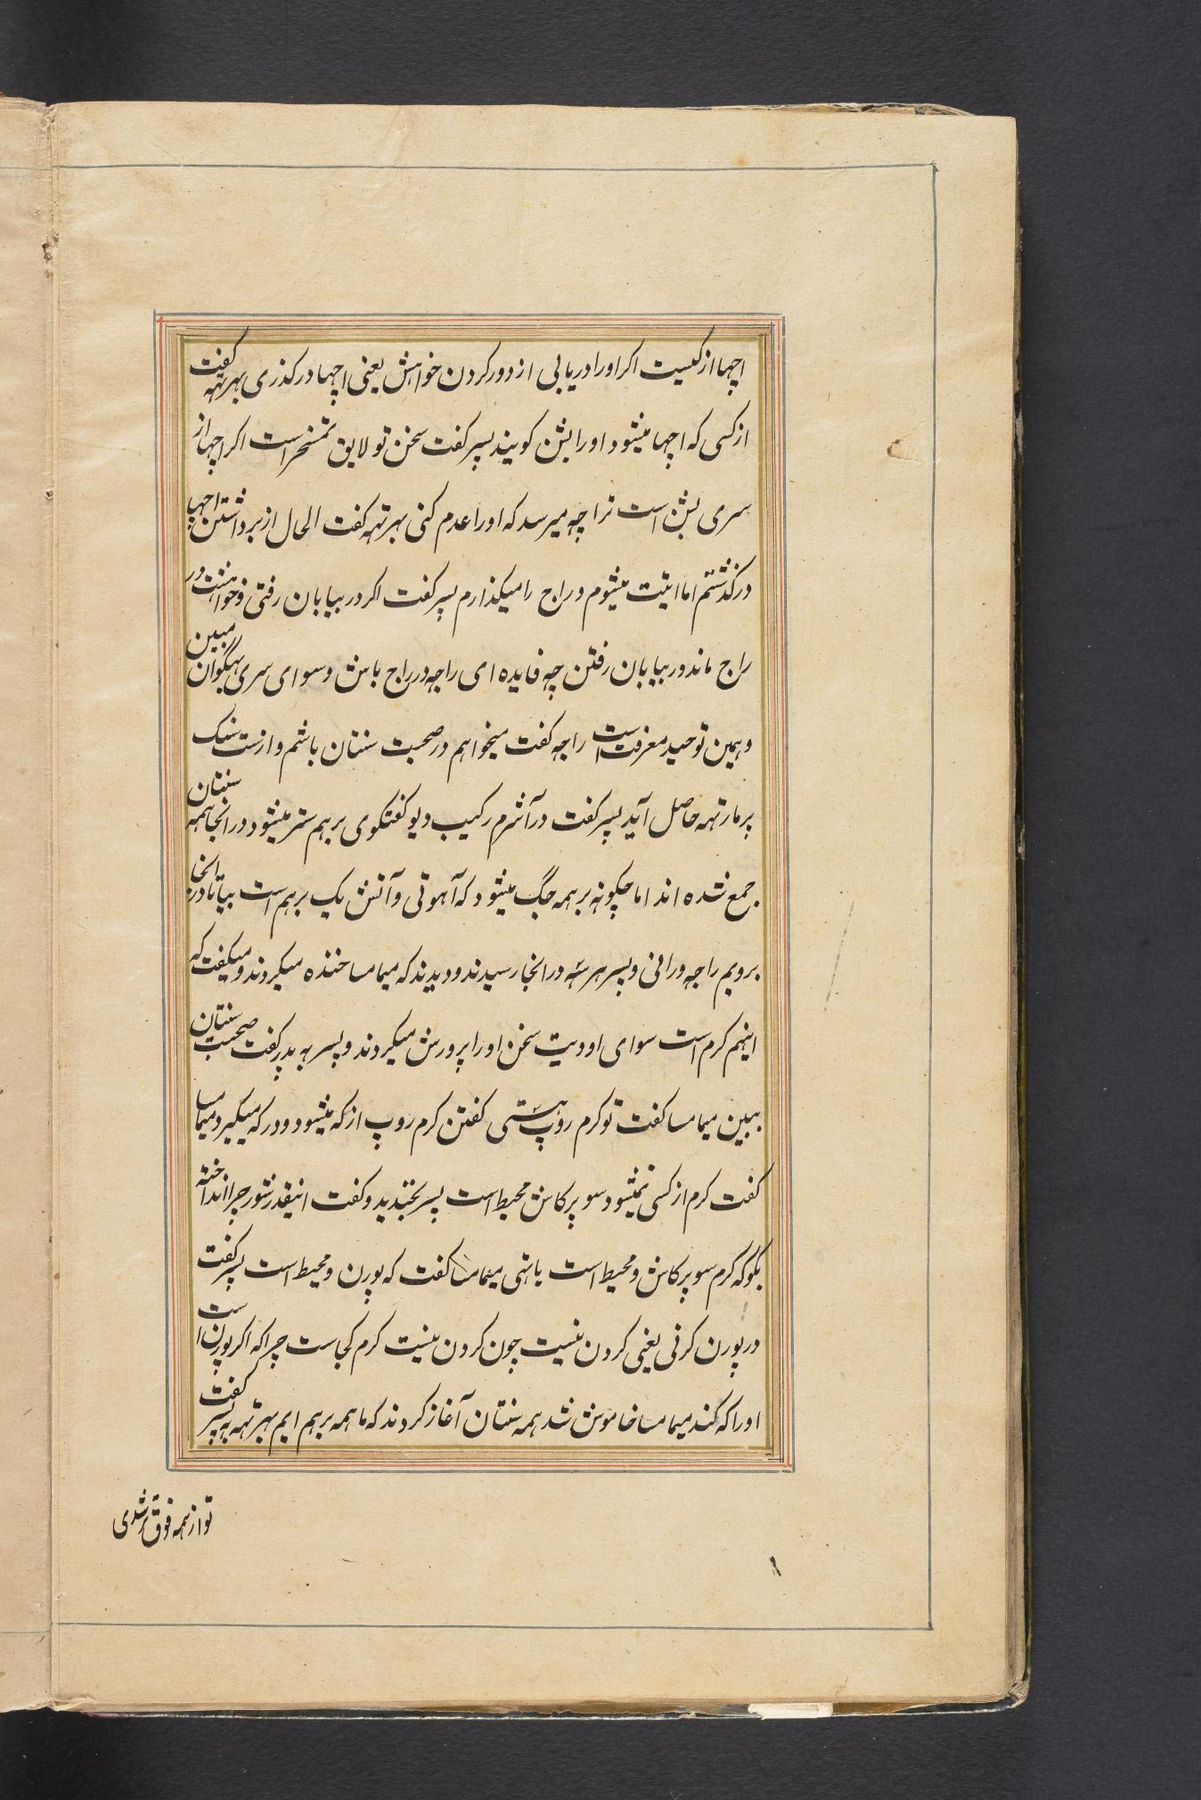 اچها از کیست اکر اورا دریابی از دور کردن خواهش یعنی اچها در کذری بهرتهه کفت
از کسی که اچها میشود اورا بشن کویند پسر کفت سخن تو لایق تمسخر است اکر اچها از
سری بشن است ترا چه میرسد که اورا عدم کنی بهرتهه کفت الحال از برداشتن اچها
درکذشتم اما اتیت میشوم و راج را میکذارم پسر کفت اکر در بیابان رفتی و خواهشت در
راج ماند در بیابان رفتن چه فایده ای راجه در راج باش و سوای سری بهکوان مبین
و همین توحید معرفت است راجه کفت میخواهم در صحبت سنتان باشم و از ست سنک
پرمارتهه حاصل آید پسر کفت در آشرم رکهیب دیو کفتکوی برهم ستر میشود در انجا همه سنتان
جمع شده اند اما چکونه برهمه جک میشود که آهوتی و آتش یک برهم است بیا تا در انجا
برویم راجه و رانی و پسر هر سه در انجا رسیدند و دیدند که میمامسا خنده میکردند و میکفت که
اینهم کرم است سوای او دیت سخن اورا پرورش میکردند و پسر به پدر کفت صحبت سنتان
ببین میمامسا کفت تو کرم روپ هستی کفتن کرم روپ از که میشود و در که میکیرد میمامسا
کفت کرم از کسی نمیشود سو پرکاش محیط است پسر بخندید و کفت اینقدر شور چرا انداخته
بکو که کرم سو پرکاش و محیط است یا نهی میمامسا کفت که پورن و محیط است پسر کفت
در پورن کرنی یعنی کردن نیست چون کردن نیست کرم کجاست چرا که اکر پورن است
اورا که کند میمامسا خاموش شد همه سنتان آغاز کردند که ما همه برهم ایم بهرتهه به پسر کفت
تو از همه فوق تر شدی